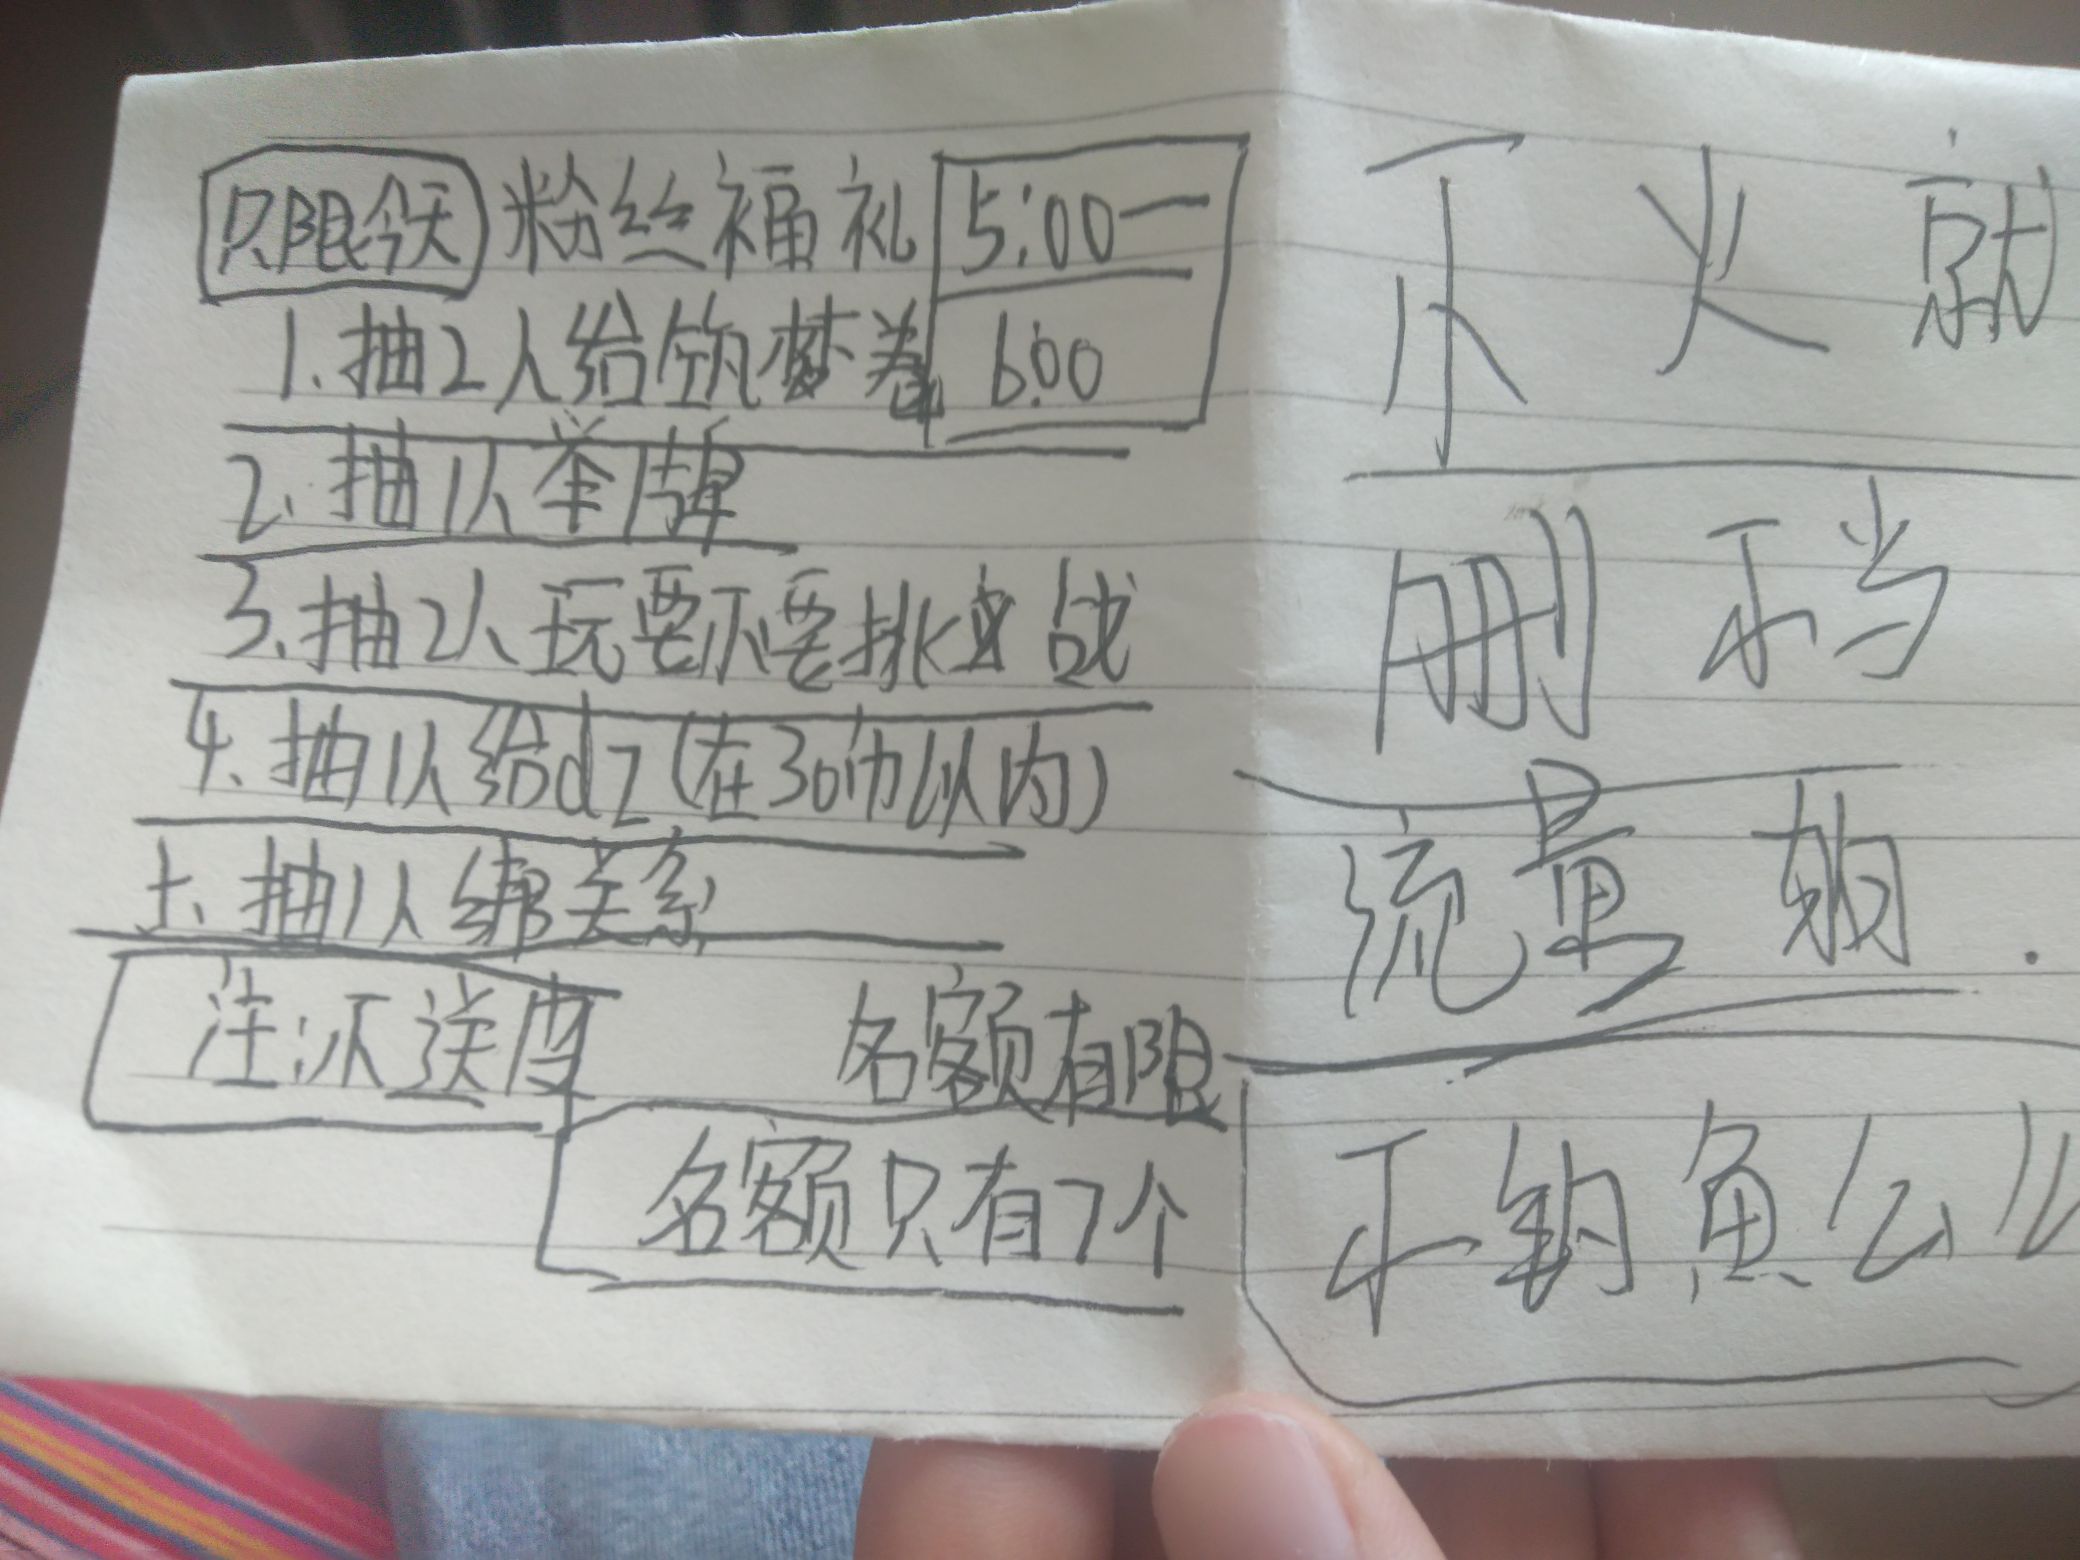 只限今天 粉丝福礼 5:00一
6:00
1.抽2人给筑梦卷
2.抽1人举牌
3.抽2人玩要不要挑战
4.抽1人给dz(在30币以内)
5.抽1人绑关系
注:不送皮 名额有限
名额只有7个
不火就
删 不当
流量
不钓鱼么